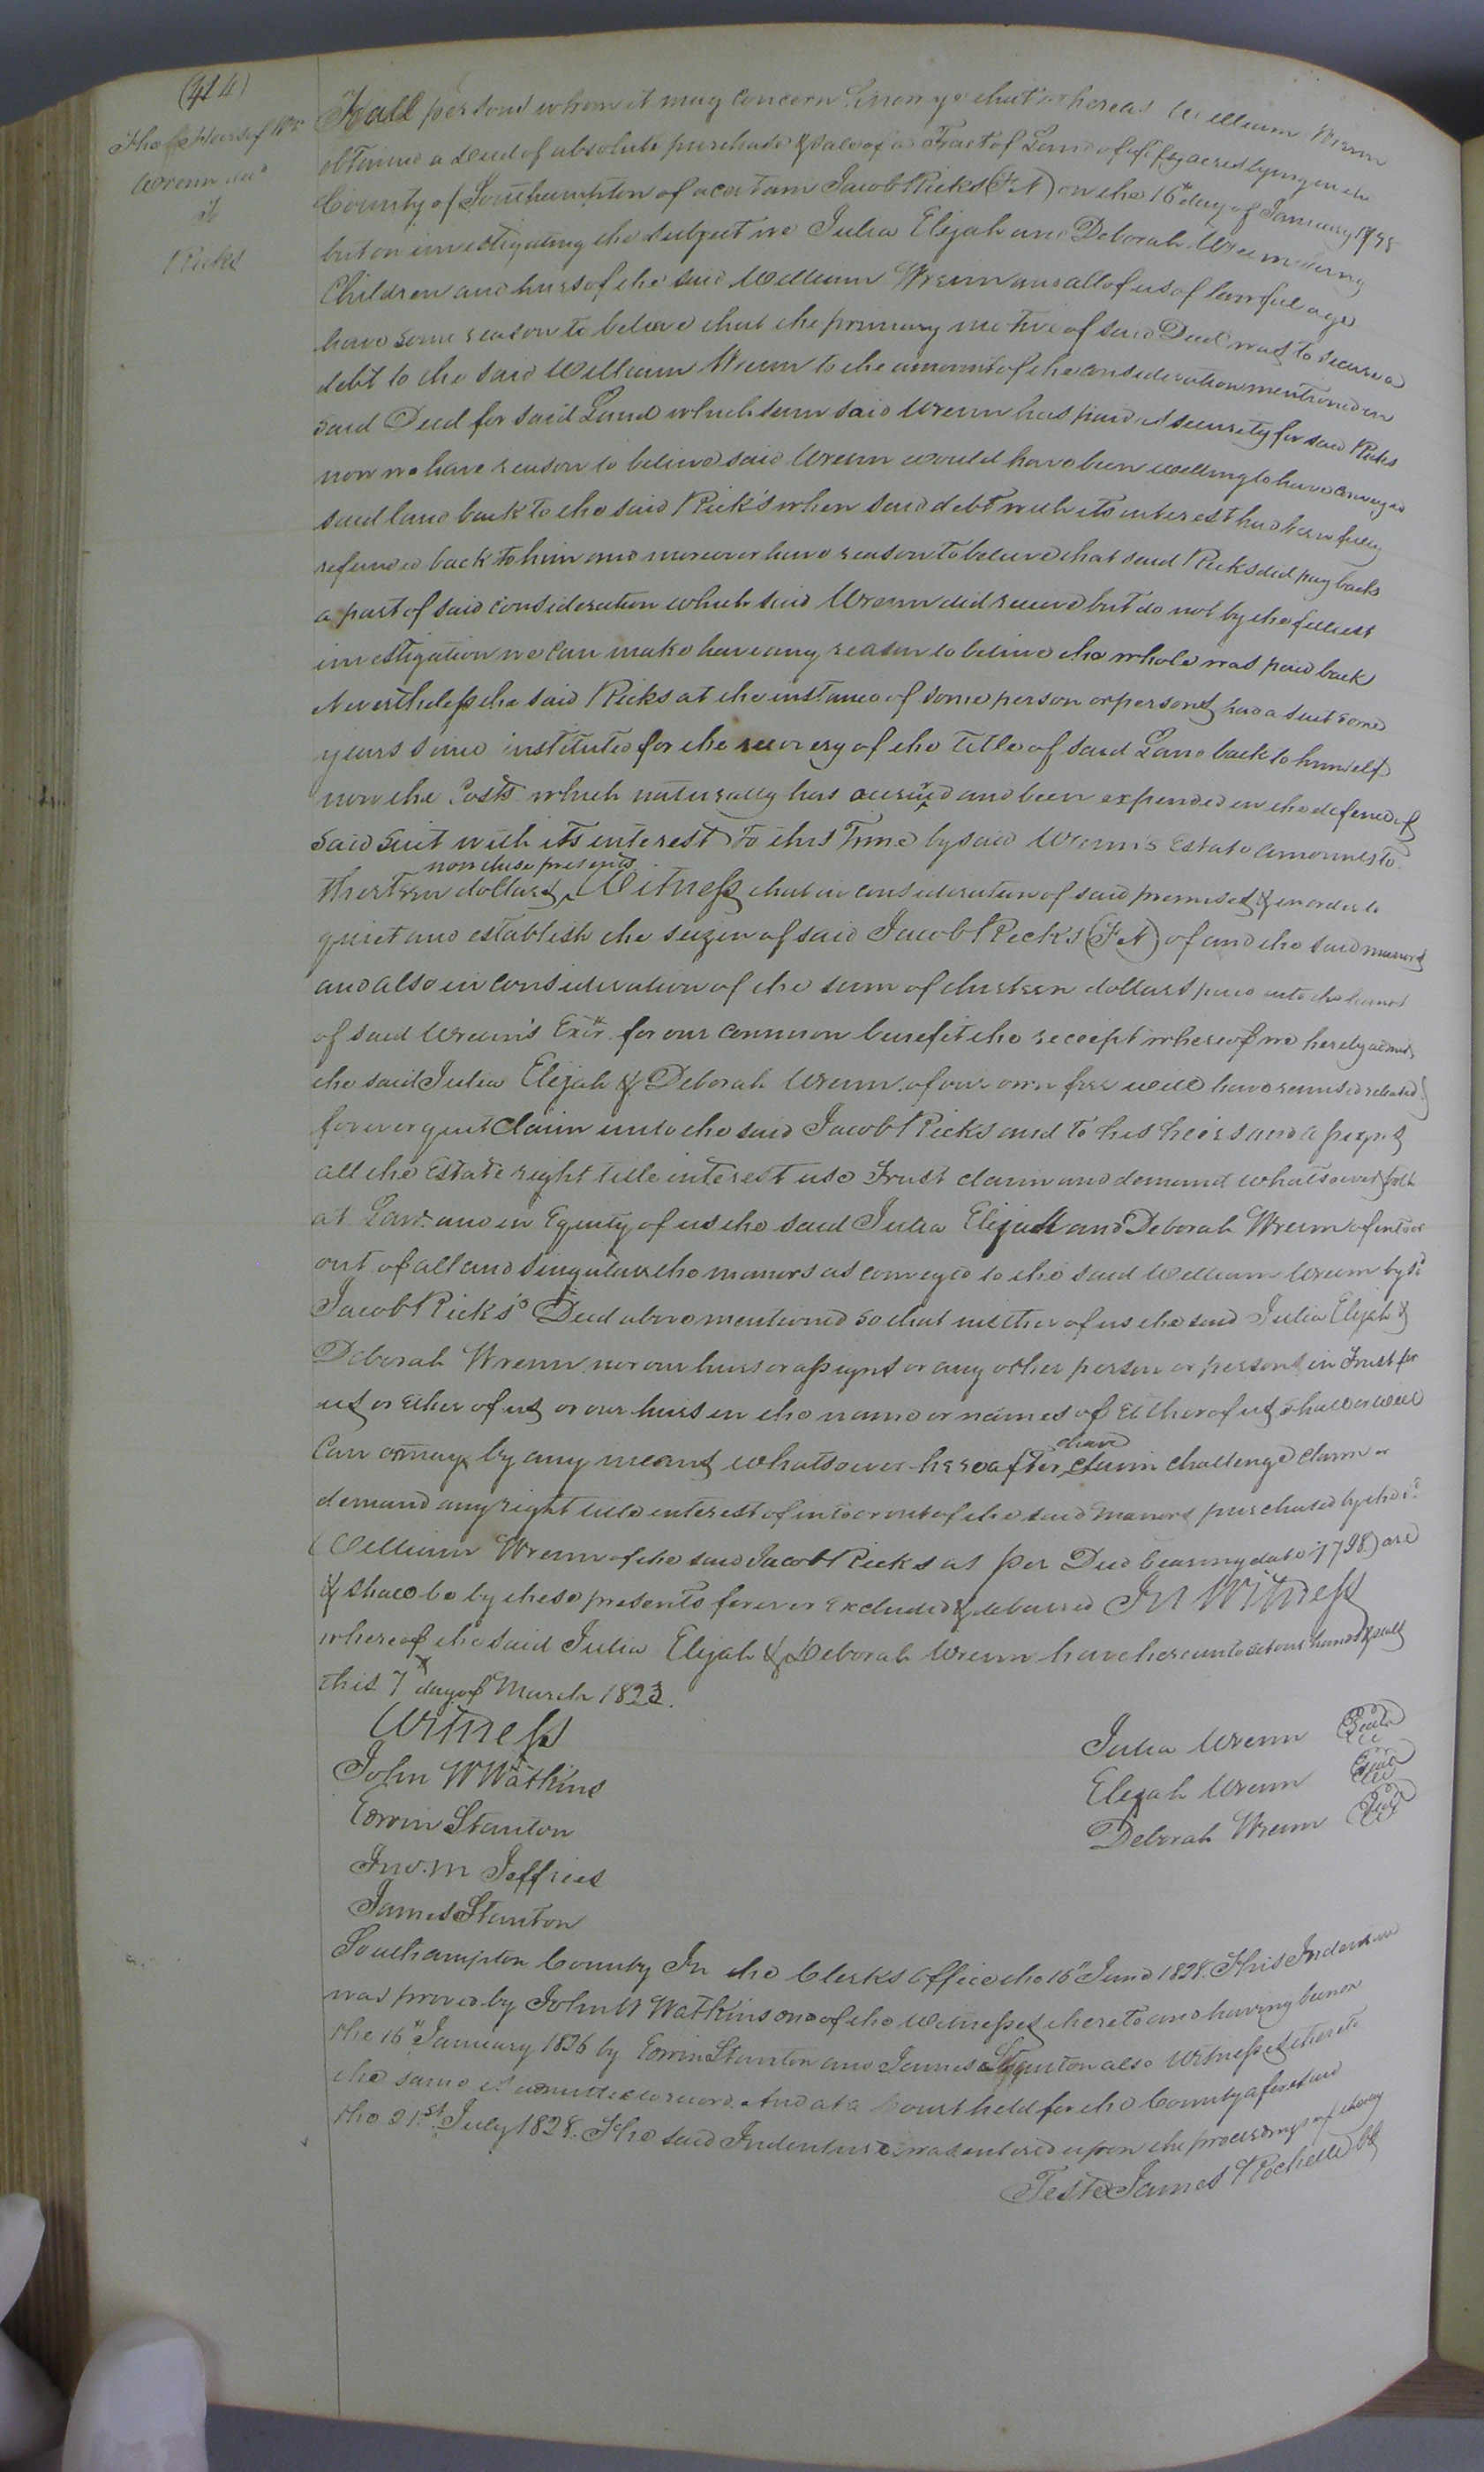 (414)
The exetors of Wm
Wrenn decd
To
Ricks
To all persons whom it may concern Know ye that whereas William Wrenn
obtained a deed of absolute purchase & sale of a Tract of Land of fifty acres lying in the
County of Southampton of a certain Jacob Ricks (F N) on the 16th day of January 1798
but on investigating the subject we Julia Elijah and Deborah Wrenn being
Children and heirs of the said William Wrenn and all of us of lawful age
have some reason to believe that the primary motive of said Deed was to secure a
debt to the said William Wrenn to the amount of the consideration mentioned in
said Deed for said Land which sum said Wrenn has paid as security for said Ricks
now we have reason to believe said Wrenn would have been willing to have conveyed
said land back to the said Rick's when said debt with its interest had been fully
refunded back to him and moreover have reason to believe that said Ricks did pay back
a part of said consideration which said Wrenn did receive but do not by the fullest
investigation we can make have any reason to believe the whole was paid back
Nevertheless the said Ricks at the instance of some person or persons had a suit some
years since instituted for the recovery of the Title of said Land back to himself
now the Costs which naturally has accrued and been expended in the defence of
said suit with its interest to this Time by said Wrenn's Estate amounts to
now these presents
thirteen dollars Witness that in consideration of said premises & in order to
quiet and establish the seizen of said Jacob Ricks (F N) of and the said manors
and also in consideration of the sum of thirteen dollars paid into the hands
of said Wrenn's Exor. for our common benefit the receipt whereof we hereby admit
the said Julia Elijah & Deborah Wrenn of our own free will have remised released &
forever quit Claim unto the said Jacob Ricks and to his heirs and assigns
all the Estate right title interest use Trust claim and demand whatsoever both
at Law and in Equity of us the said Julia Elijah and Deborah Wrenn of into or
out of all and singular the manors as conveyed to the said William Wrenn by sd
Jacob Ricks's Deed above mentioned so that neither of us the said Julia Elijah &
Deborah Wrenn nor our heirs or assigns or any other person or persons in Trust for
us or either of us or our heirs in the name or names of Either of us shall or will
have
Can or may by any means whatsoever hereafter claim challenge claim or
demand any right title interest of into or out of the said Manors purchased by the sd
(William Wrenn of the said Jacob Ricks as per Deed bearing date 1798) are
& shall be by these presents forever Excluded & debarred In Witness
whereof the said Julia Elijah & Deborah Wrenn have hereunto set our hands & seals
this 7th day of March 1823.
Witness
John W Watkins
Edwin Stanton
Jno. M Jeffries
James Stanton
Julia Wrenn Seal
Elijah Wrenn Seal
Deborah Wrenn Seal
Southampton County In the Clerks Office the 16th June 1828. This Indenture
was proved by John W Watkins one of the Witnesses thereto and having been on
the 16th January 1826 by Edwin Stanton and James Stanton also Witnesses thereto
the same is admitted to record. And at a Court held for the County aforesaid
the 21st July 1828. The said Indenture was entered upon the proceedings of the day
Teste James Rochelle Clk